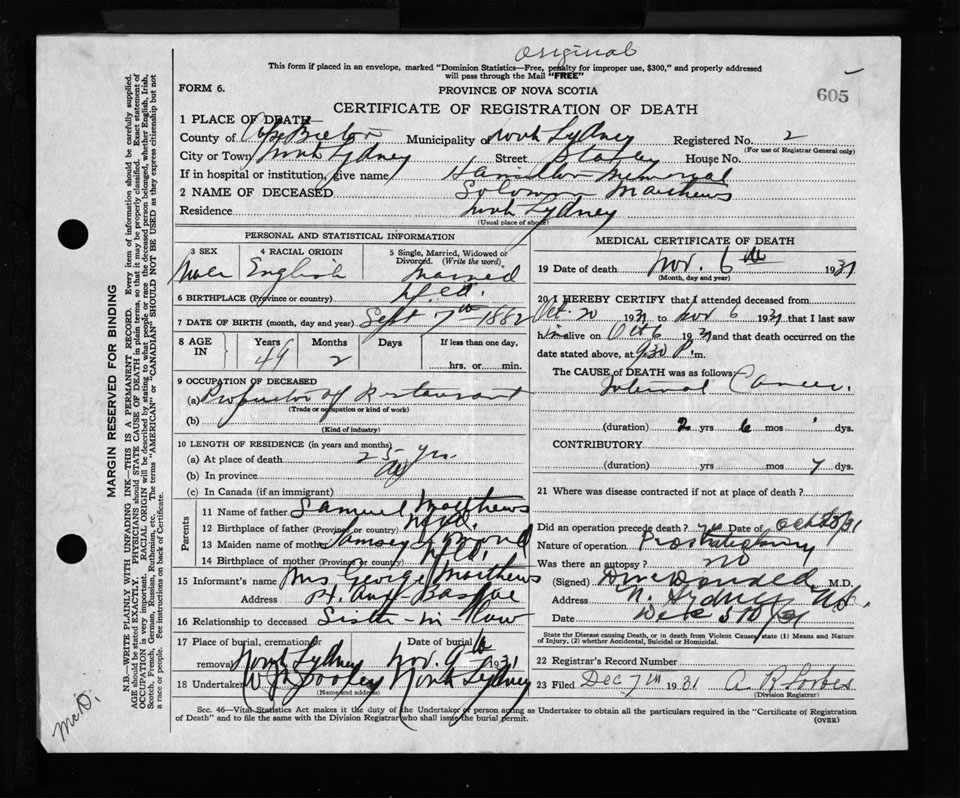 Original
This form if placed in an envelope, marked "Dominion Statistics—Free, penalty for improper use, $300," and properly addressed
will pass through the Mail "FREE"
FORM 6.
PROVINCE OF NOVA SCOTIA
605
CERTIFICATE OF REGISTRATION OF DEATH
1 PLACE OF DEATH
County of Cape Breton Municipality of North Sydney Registered No. 2
(For use of Registrar General only)
City or Town North Sydney Street Stanley House No.
If in hospital or institution, give name Hamilton Memorial
2 NAME OF DECEASED Solomon Matthews
Residence North Sydney
(Usual place of abode)
PERSONAL AND STATISTICAL INFORMATION
3 SEX 4 RACIAL ORIGIN 5 Single, Married, Widowed or
Divorced. (Write the word)
Male English Married
6 BIRTHPLACE (Province or country) Nfld.
7 DATE OF BIRTH (month, day and year) Sept 7th 1882
8 AGE IN Years Months Days If less than one day,
49 2 hrs. or min.
9 OCCUPATION OF DECEASED
(a) Proprietor of Restaurant
(Trade or occupation or kind of work)
(b)
(Kind of industry)
10 LENGTH OF RESIDENCE (in years and months)
(a) At place of death 25 yrs.
(b) In province
(c) In Canada (if an immigrant)
Parents
11 Name of father Samuel Matthews
12 Birthplace of father (Province or country) Nfld.
13 Maiden name of mother
14 Birthplace of mother (Province or country) Nfld.
15 Informant's name Mrs George Matthews
Address
16 Relationship to deceased Sister-in-law
17 Place of burial, cremation or Date of burial
removal North Sydney Nov. 9th 1931
18 Undertaker North Sydney
(Name and address)
MEDICAL CERTIFICATE OF DEATH
19 Date of death Nov. 6th 1931
(Month, day and year)
20 I HEREBY CERTIFY that I attended deceased from
Oct. 20 1931 to Nov 6 1931 that I last saw
him alive on Oct 6 1931 and that death occurred on the
date stated above, at 9.30 P. m.
The CAUSE OF DEATH was as follows
Cancer.
(duration) 2 yrs 6 mos dys.
CONTRIBUTORY
(duration) yrs. mos 7 dys.
21 Where was disease contracted if not at place of death?
Did an operation precede death? yes Date of Oct 23/31
Nature of operation
Was there an autopsy? no
(Signed) McDonald M.D.
Address N. Sydney N.S.
Date Dec 5th/31
State the Disease causing Death, or in death from Violent Causes, state (1) Means and Nature
of Injury, (2) whether Accidental, Suicidal or Homicidal.
22 Registrar's Record Number
23 Filed Dec 7th 1931 A. R. Forbes
(Division Registrar)
Sec. 46—Vital Statistics Act makes it the duty of the Undertaker or person acting as Undertaker to obtain all the particulars required in the "Certificate of Registration
of Death" and to file the same with the Division Registrar who shall issue the burial permit.
(OVER)
MARGIN RESERVED FOR BINDING
N.B.—WRITE PLAINLY WITH UNFADING INK—THIS IS A PERMANENT RECORD. Every item of information should be carefully supplied.
AGE should be stated EXACTLY. PHYSICIANS should STATE CAUSE OF DEATH in plain terms, so that it may be properly classified. Exact statement of
OCCUPATION is very important. RACIAL ORIGIN will be described by stating to what people or race the deceased person belonged, whether English, Irish,
Scotch, French, German, Russian, Ruthenian, etc. The terms "AMERICAN" or "CANADIAN" SHOULD NOT BE USED as they express citizenship but not
a race or people. See instructions on back of Certificate.
McD.